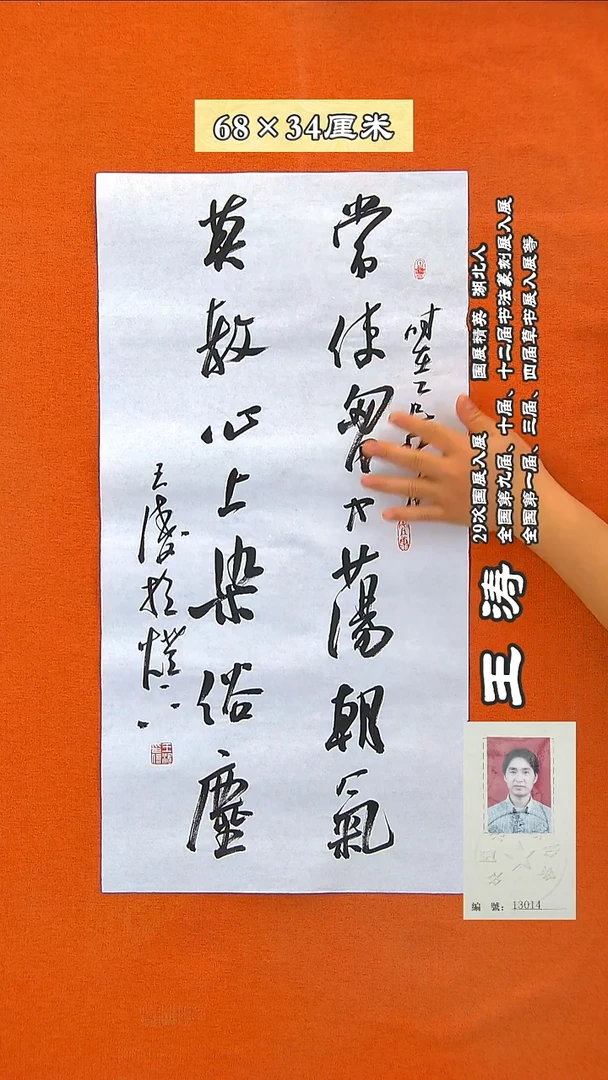 68×34厘米
常使胸中荡朝氣
莫教心上染俗塵
29次国展入展 国展精英 湖北人
全国第九届、十届、十二届书法篆刻展入展
全国第一届、三届、四届草书展入展等
王涛
編 號: 13014